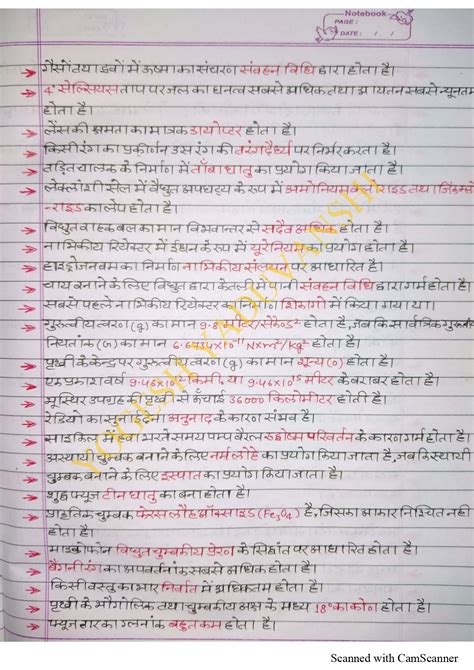 Notebook
PAGE:
DATE: / /
गैसों तथा द्रवों में ऊष्मा का संचरण संवहन विधि द्वारा होता है।
4° सेल्सियस ताप पर जल का घनत्व सबसे अधिक तथा आयतन सबसे न्यूनतम
होता है।
लेंस की क्षमता का मात्रक डायोप्टर होता है।
किसी रंग का प्रकीर्णन उस रंग की तरंगदैर्ध्य पर निर्भर करता है।
तड़ित चालक के निर्माण में तांबा धातु का प्रयोग किया जाता है।
लेक्लांशी सेल में वैद्युत अपघट्य के रूप में अमोनियम क्लोराइड तथा जिंक क्लो
-राइड का लेप होता है।
विद्युत वाहक बल का मान विभवान्तर से सदैव अधिक होता है।
नाभिकीय रियेक्टर में ईंधन के रूप में यूरेनियम का प्रयोग होता है।
हाइड्रोजन बम का निर्माण नाभिकीय संलयन पर आधारित है।
चाय बनाने के लिए विद्युत द्वारा केतली में पानी संवहन विधि द्वारा गर्म होता है।
सबसे पहले नाभिकीय रियेक्टर का निर्माण शिकागो में किया गया था।
गुरुत्वीय त्वरण (g) का मान 9.8 मीटर/सेकेण्ड² होता है, जबकि सार्वत्रिक गुरुत्वीय
नियतांक (G) का मान 6.6734×10⁻¹¹ N×m²/kg² होता है।
पृथ्वी के केन्द्र पर गुरुत्वीय त्वरण (g) का मान शून्य (0) होता है।
एक प्रकाश वर्ष 9.46×10¹² किमी. या 9.46×10¹⁵ मीटर के बराबर होता है।
भूस्थिर उपग्रह की पृथ्वी से ऊँचाई 36000 किलोमीटर होती है।
रेडियो का समाइटमा अनुनाद के कारण संभव है।
साइकिल में हवा भरते समय पम्प बैरल रुद्धोष्म परिवर्तन के कारण गर्म होता है।
अस्थायी चुम्बक बनाने के लिए नर्म लोहे का प्रयोग किया जाता है, जबकि स्थायी
चुम्बक बनाने के लिए इस्पात का प्रयोग किया जाता है।
शुष्क फ्यूज टीन धातु का बना होता है।
प्राकृतिक चुम्बक फेरस लौह ऑक्साइड (Fe₃O₄) है, जिसका आकार निश्चित नहीं
होता है।
माइक्रोफोन विद्युत चुम्बकीय प्रेरण के सिद्धांत पर आधारित होता है।
बैंगनी रंग का अपवर्तनांक सबसे अधिक होता है।
किसी वस्तु का भार निर्वात में अधिकतम होता है।
पृथ्वी के भौगोलिक तथा चुम्बकीय अक्ष के मध्य 18° का कोण होता है।
फ्यूज तार का गलनांक बहुत कम होता है।
YOGESH YADUVANSHI
Scanned with CamScanner